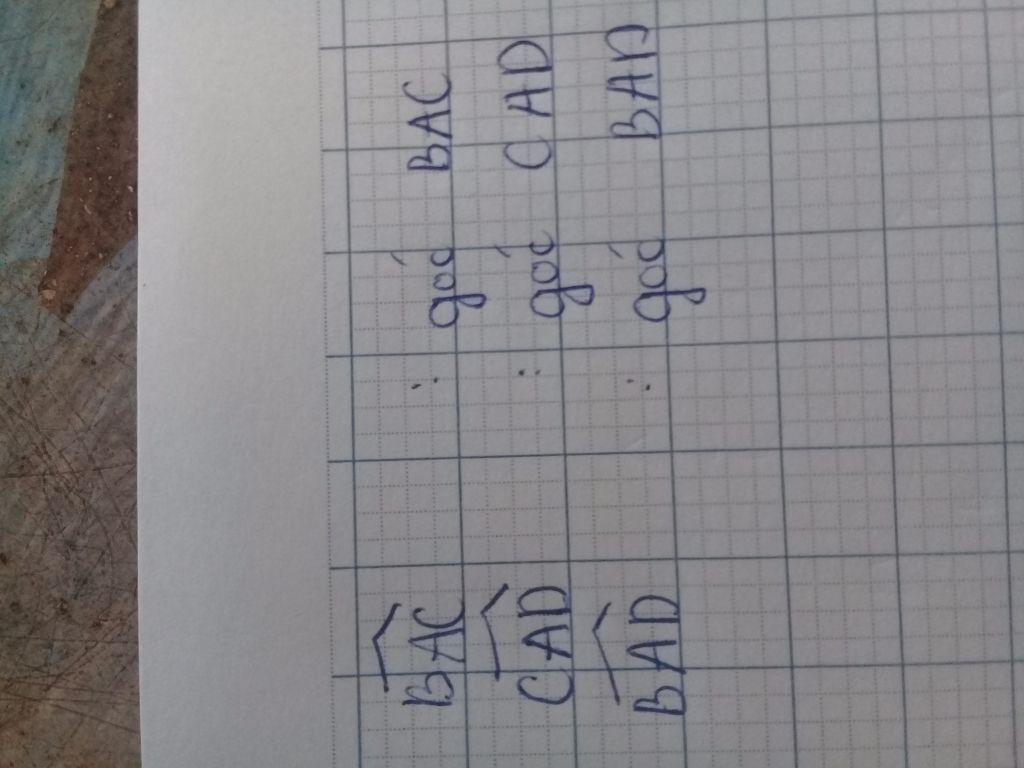 B͡AC : góc BAC
C͡AD : góc CAD
B͡AD : góc BAD